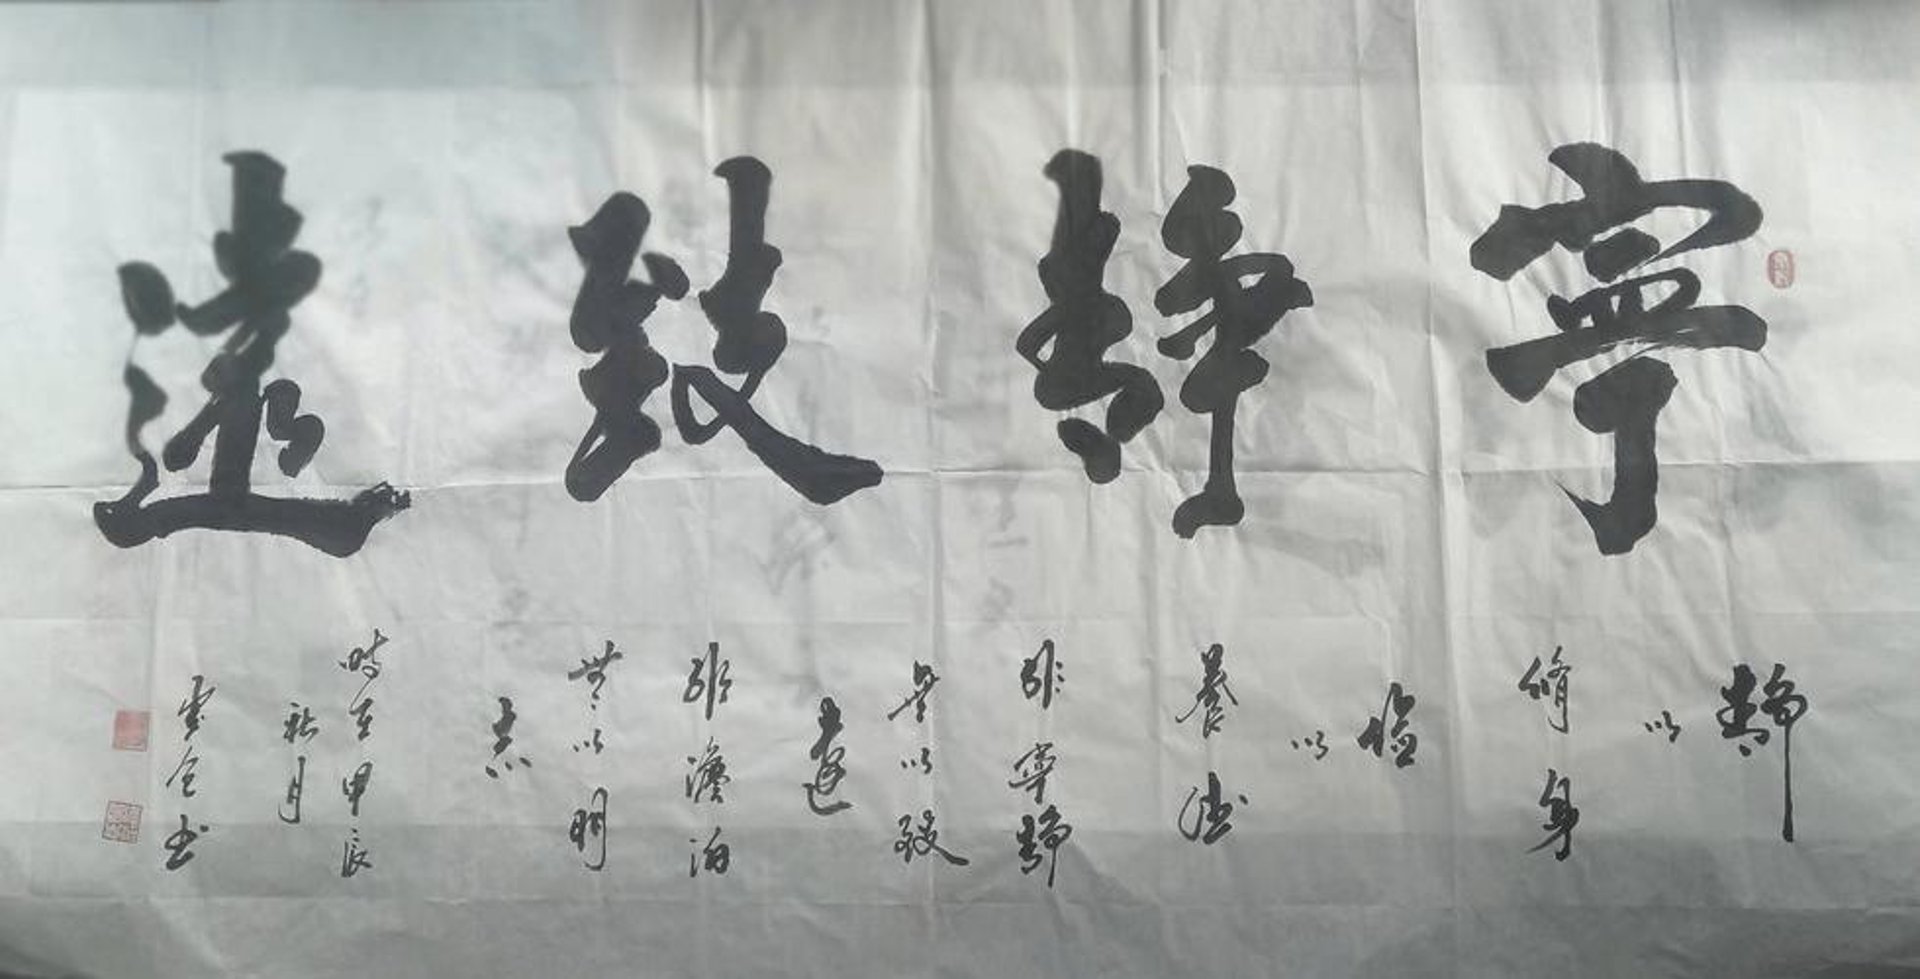 寧靜致遠
靜
以
修身
儉
以
養德
非寧靜
無以致
遠
非澹泊
無以明
志
時在甲辰
秋月
書